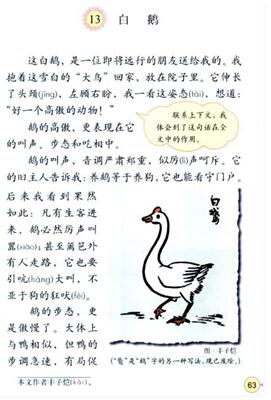 13 白 鹅
这白鹅，是一位即将远行的朋友送给我的。我
抱着这雪白的“大鸟”回家，放在院子里。它伸长
了头颈(jǐng)，左顾右盼，我一看这姿态(tài)，想道：
“好一个高傲的动物！”
联系上下文，我
体会到了这句话在全
文中的作用。
鹅的高傲，更表现在它
的叫声、步态和吃相中。
鹅的叫声，音调严肃郑重，似厉(lì)声呵斥。它
的旧主人告诉我：养鹅等于养狗，它也能看守门户。
后来我看到果然
如此：凡有生客进
来，鹅必然厉声叫
嚣(xiāo)；甚至篱笆外
有人走路，它也要
引吭(háng)大叫，不
亚于狗的狂吠(fèi)。
鹅的步态，更
是傲慢了。大体上
与鸭相似，但鸭的
步调急速，有局促
白鵞
图·丰子恺
（“鵞”是“鹅”字的另一种写法，现已废除。）
本文作者丰子恺(kǎi)。
63